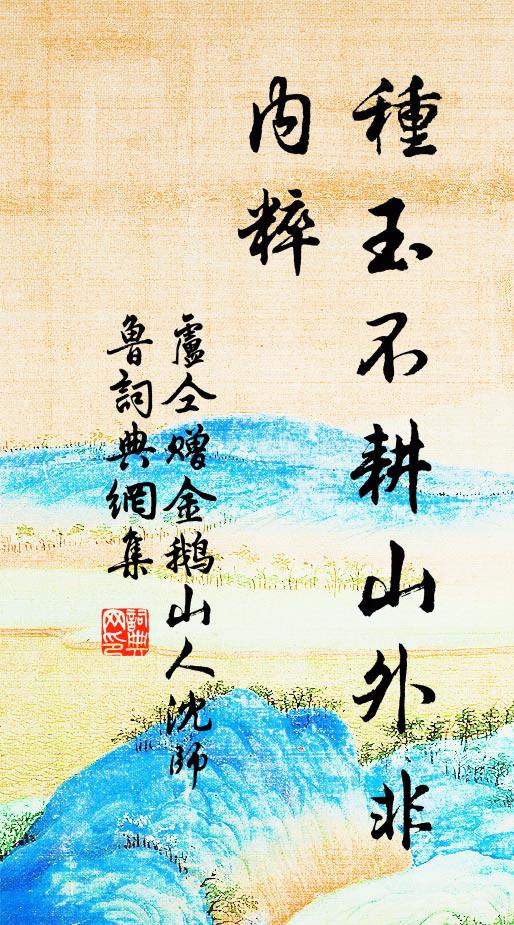 種玉不耕山外非
内粹
盧仝贈金鵝山人沈師
魯詞典網集
詞典网印